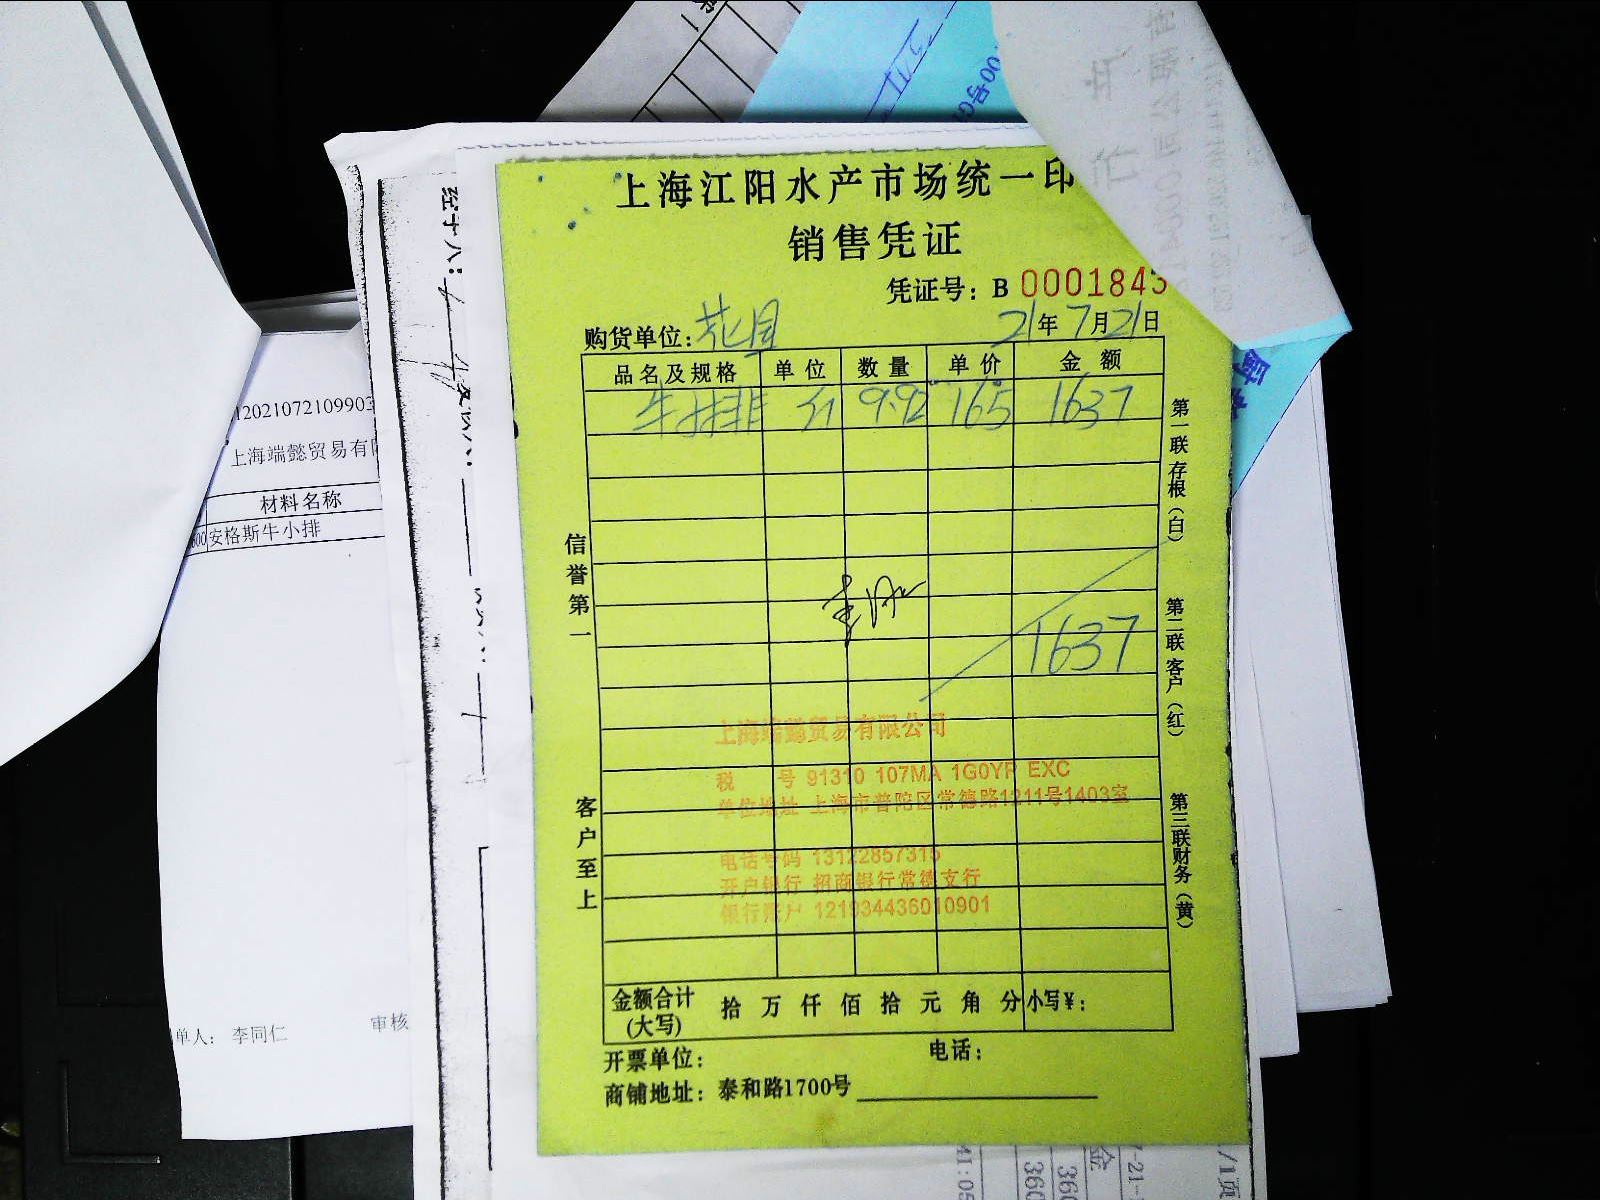 上海江阳水产市场统一印
销售凭证
凭证号：B 0001843
购货单位：花园 21年7月21日
品名及规格 单位 数量 单价 金额
牛排 斤 9.92 165 1637
1637
信誉第一
客户至上
第一联存根（白）
第二联客户（红）
第三联财务（黄）
上海端懿贸易有限公司
税 号 91310 107MA 1G0YP EXC
单位地址 上海市普陀区常德路1211号1403室
电话号码 13122857315
开户银行 招商银行常德支行
银行账户 121934436010901
金额合计(大写) 拾 万 仟 佰 拾 元 角 分 小写¥：
开票单位： 电话：
商铺地址：泰和路1700号
1202107210990
上海端懿贸易有
材料名称
安格斯牛小排
单人： 李同仁 审核